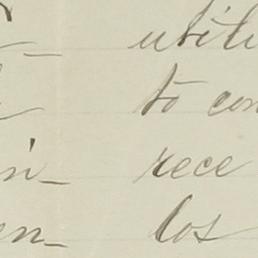 utili
to con
in- rece
en- los